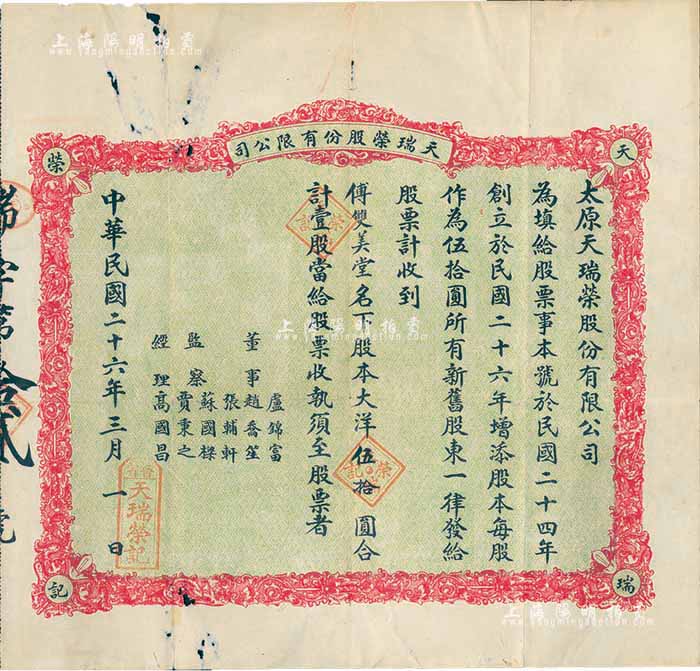 上海陽明拍賣
www.yangmingauction.com
天瑞榮股份有限公司
天
瑞
榮
記
太原天瑞榮股份有限公司
為填給股票事本號於民國二十四年
創立於民國二十六年增添股本每股
作為伍拾圓所有新舊股東一律發給
股票計收到
傅雙美堂名下股本大洋伍拾圓合
計壹股當給股票收執須至股票者
盧錦富
董事趙喬笙
張輔軒
蘇國樑
監察賈秉之
經理高國昌
中華民國二十六年三月一日
天瑞榮記
榮記
榮記
字第拾貳號
上海陽明拍賣
www.yangmingauction.com
上海陽明拍賣
www.yangmingauction.com